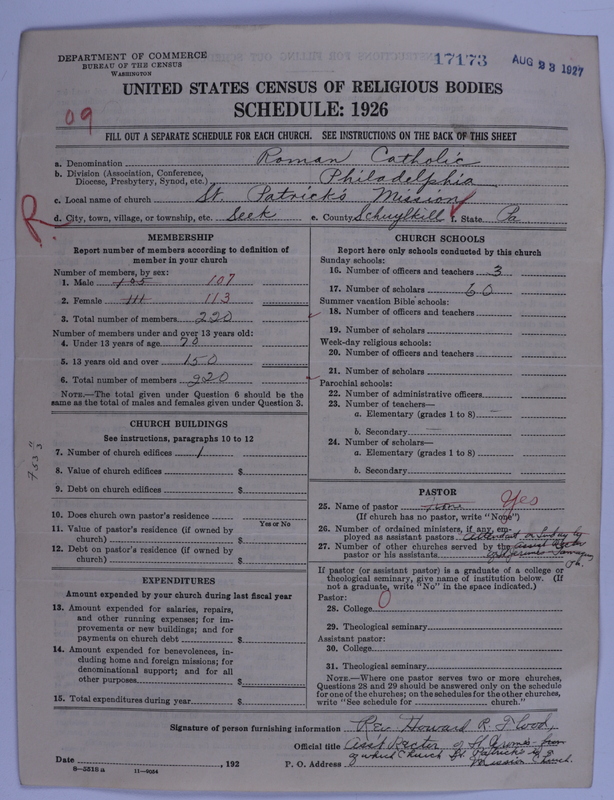 DEPARTMENT OF COMMERCE
BUREAU OF THE CENSUS
WASHINGTON
17173
AUG 23 1927
UNITED STATES CENSUS OF RELIGIOUS BODIES
SCHEDULE: 1926
09
FILL OUT A SEPARATE SCHEDULE FOR EACH CHURCH. SEE INSTRUCTIONS ON THE BACK OF THIS SHEET
a. Denomination Roman Catholic
b. Division (Association, Conference, Diocese, Presbytery, Synod, etc.) Philadelphia
c. Local name of church St. Patrick's Mission
R.
d. City, town, village, or township, etc. Seek e. County Schuylkill f. State Pa
MEMBERSHIP
Report number of members according to definition of
member in your church
Number of members, by sex:
1. Male 105 107
2. Female 111 113
3. Total number of members 220
Number of members under and over 13 years old:
4. Under 13 years of age 70
5. 13 years old and over 150
6. Total number of members 220
NOTE.—The total given under Question 6 should be
same as the total of males and females given under Question 3.
CHURCH BUILDINGS
See instructions, paragraphs 10 to 12
7. Number of church edifices 1
8. Value of church edifices $
9. Debt on church edifices $
10. Does church own pastor's residence
Yes or No
11. Value of pastor's residence (if owned by
church) $
12. Debt on pastor's residence (if owned by
church) $
EXPENDITURES
Amount expended by your church during last fiscal year
13. Amount expended for salaries, repairs,
and other running expenses; for im-
provements or new buildings; and for
payments on church debt $
14. Amount expended for benevolences, in-
cluding home and foreign missions; for
denominational support; and for all
other purposes $
15. Total expenditures during year $
CHURCH SCHOOLS
Report here only schools conducted by this church
Sunday schools:
16. Number of officers and teachers 3
17. Number of scholars 60
Summer vacation Bible schools:
18. Number of officers and teachers
19. Number of scholars
Week-day religious schools:
20. Number of officers and teachers
21. Number of scholars
Parochial schools:
22. Number of administrative officers
23. Number of teachers—
a. Elementary (grades 1 to 8)
b. Secondary
24. Number of scholars—
a. Elementary (grades 1 to 8)
b. Secondary
PASTOR
25. Name of pastor None Yes
(If church has no pastor, write "None")
26. Number of ordained ministers, if any, em-
ployed as assistant pastors Attended on Sunday by
27. Number of other churches served by the
pastor or his assistants
If pastor (or assistant pastor) is a graduate of a college or
theological seminary, give name of institution below. (If
not a graduate, write "No" in the space indicated.)
Pastor:
28. College 0
29. Theological seminary
Assistant pastor:
30. College
31. Theological seminary
NOTE.—Where one pastor serves two or more churches,
Questions 28 and 29 should be answered only on the schedule
for one of the churches; on the schedules for the other churches,
write "See schedule for church."
Signature of person furnishing information Rev Howard R. Flood,
Official title Asst Rector of St Jeromes from
of which Church St. Patrick's is a
Mission Church.
Date , 192 P. O. Address
8—5518a 11—9034